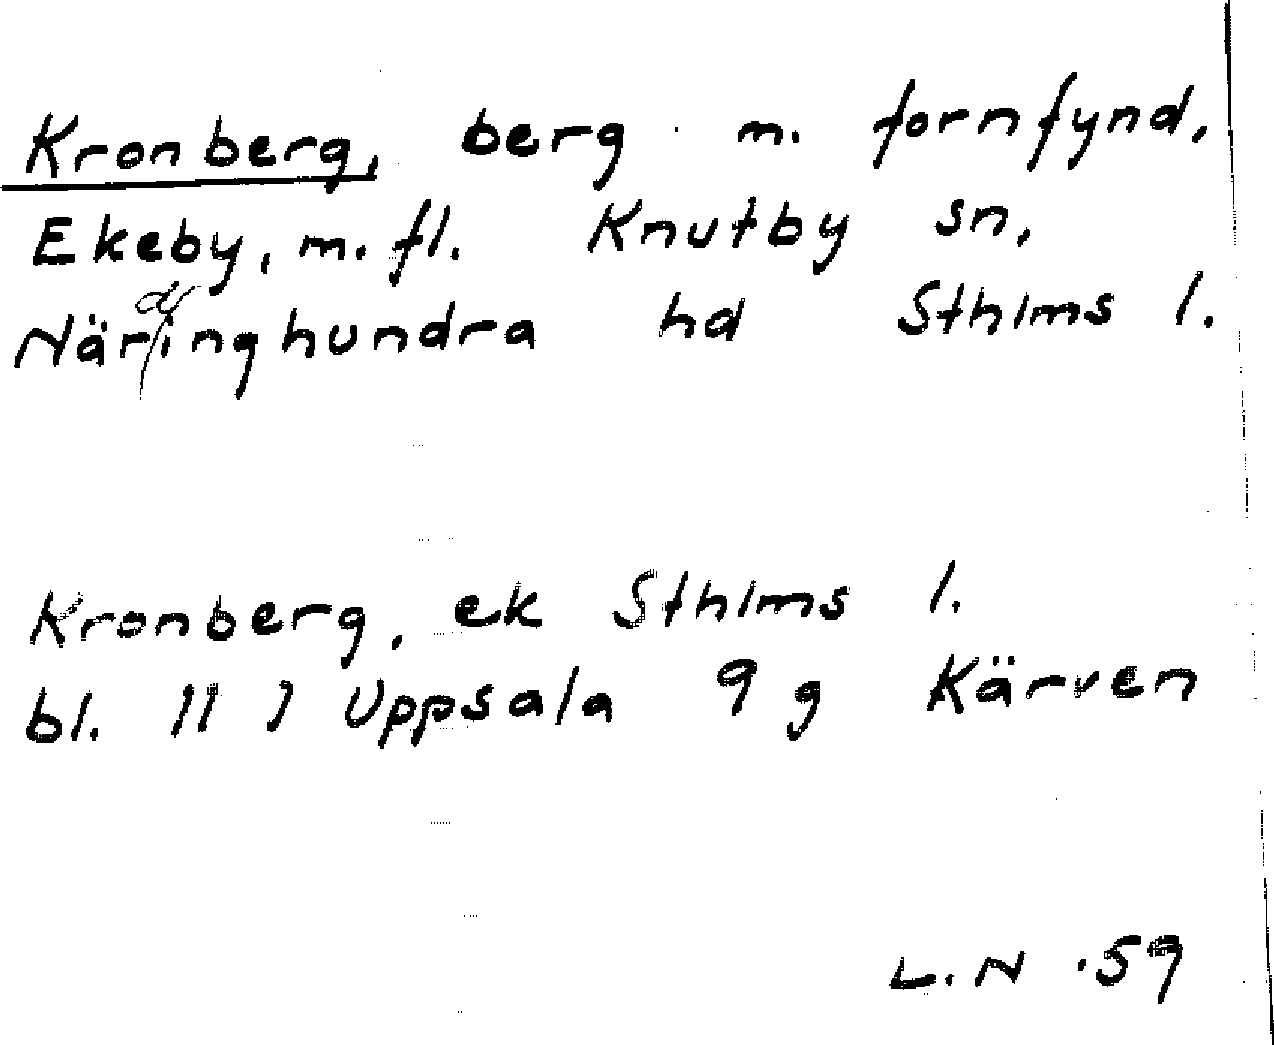 Kronberg, berg m. fornfynd,
Ekeby, m.fl. Knutby sn,
Närdinghundra hd Sthlms l.
Kronberg, ek Sthlms l.
bl. 11 I Uppsala 9 g Kärven
L.N .59